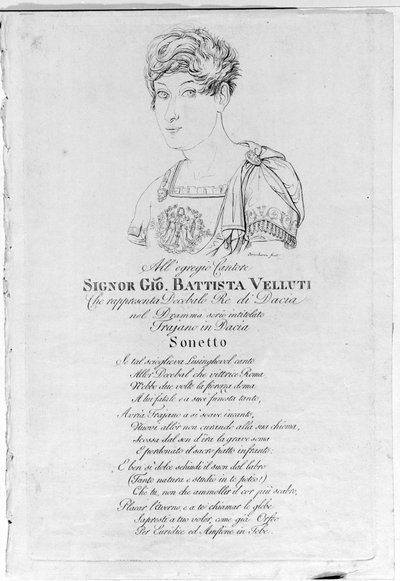 All' egregio Cantore
SIGNOR GIO. BATTISTA VELLUTI
Che rappresenta Decebalo Re di Dacia
nel Dramma serio intitolato
Trajano in Dacia
Sonetto
Se tal scioglieva Lusinghevol canto
Allor Decebal che vittrice Roma
N'ebbe due volte la fierezza doma
A lui fatale e a suoi funesta tanto,
Avria Trajano a sì soave incanto,
Nuovi allor non curando alla sua chioma,
Scossa dal sen d'ira la grave soma
E perdonato il sacro patto infranto;
E ben sì dolce schiudi il suon dal labro
(Tanto natura e studio in te poteo!)
Che tu, non che ammollir il cor più scabro,
Placar l'Averno, e a te chiamar le glebe
Sapresti a tuo voler, come già Orfeo
Per Euridice ed Amfione in Tebe.